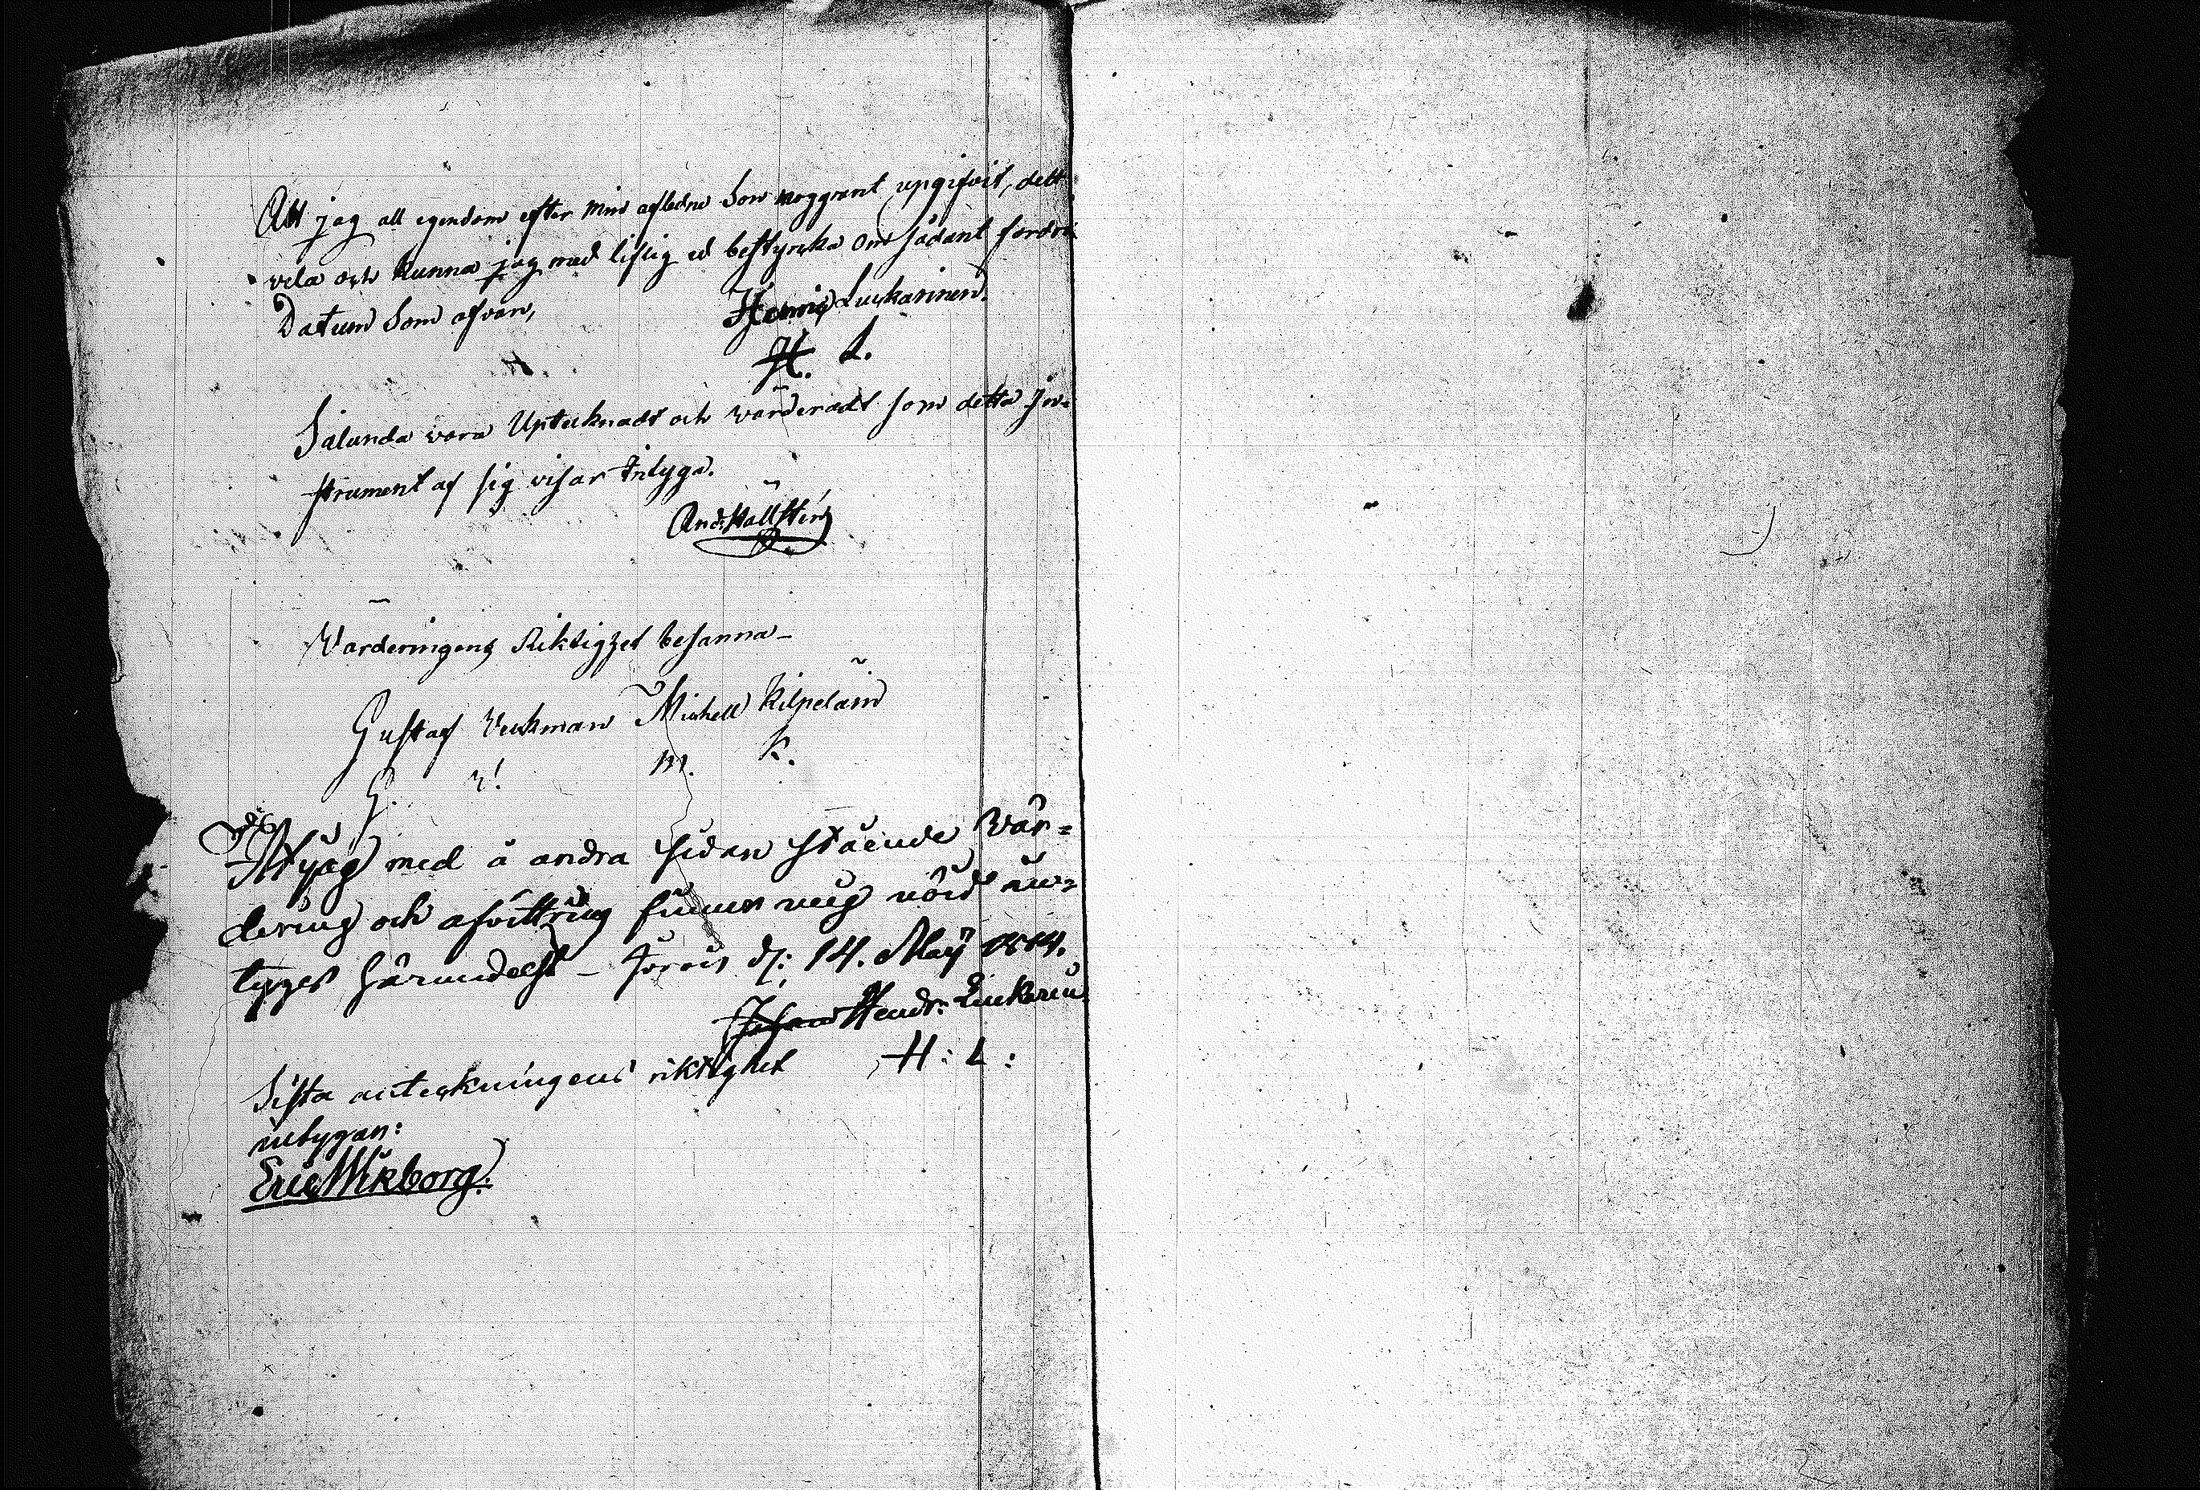 Att jag all egendom efter min afledne Son noggrant upgifvit, dett
vela och kunna jag med liflig ed bestyrcka om sådant fordra
Datum Som ofvan,
Henric Luckarinen.
H. L.
Sålunda vara Uptecknadt och värderadt som detta In=
strument af sig visar intyga.
And: Hällstén
Värderingens Riktighet besanna_
Gustaf Veckman Michell Kilpeläin
G. V. M. K.
At jag med å andra sidan stående Vär=
dering och afvittring finner mig nöid in=
tyges härmedelst _ Jorois d: 14. Maÿ 1814.
Hendr: Luckarin
H: L:
Sista anteckningens riktighet
intygar:
Eric Wikborg.